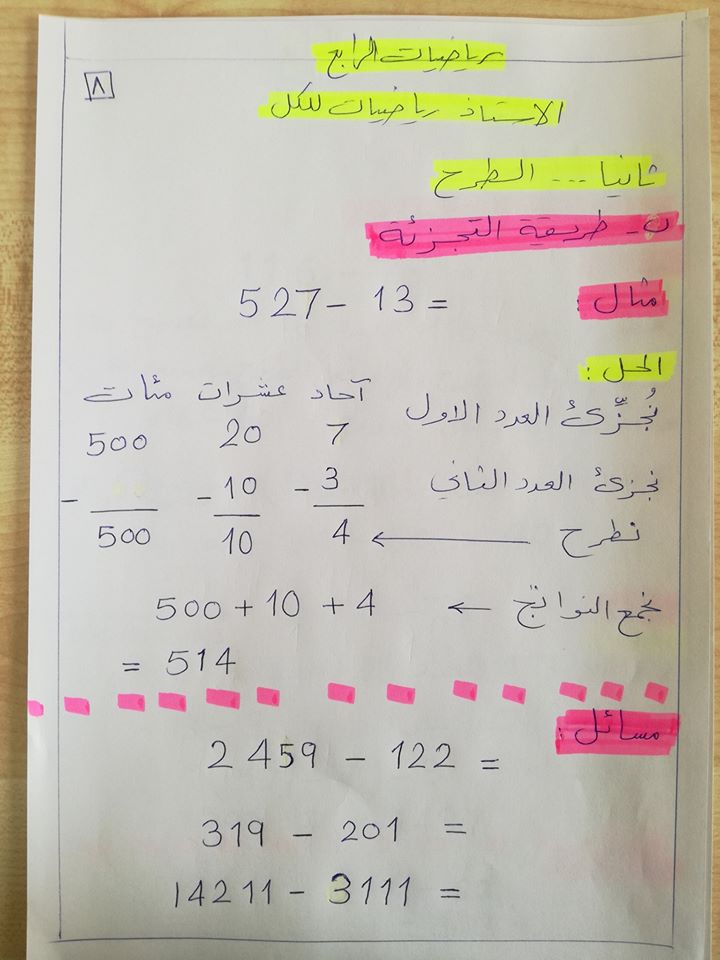 رياضيات الرابع
٨
الاستاذ رياضيات للكل
ثانيا ... الطرح
ب- طريقة التجزئة
مثال: 527 - 13 =
الحل:
آحاد عشرات مئات
نُجزِّئ العدد الاول 7 20 500
نجزئ العدد الثاني - 3 - 10 -
نطرح ← 4 10 500
نجمع النواتج ← 500 + 10 + 4
= 514
مسائل:
2459 - 122 =
319 - 201 =
14211 - 3111 =